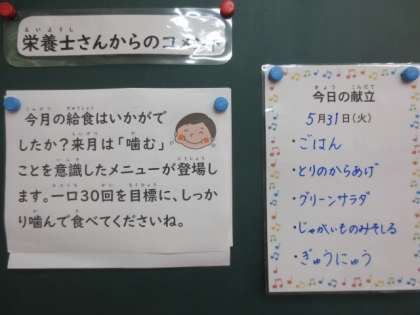 栄養士さんからのコメント
今月の給食はいかがで
したか？来月は「噛む」
ことを意識したメニューが登場し
ます。一口30回を目標に、しっか
り噛んで食べてくださいね。
今日の献立
5月31日(火)
・ごはん
・とりのからあげ
・グリーンサラダ
・じゃがいものみそしる
・ぎゅうにゅう